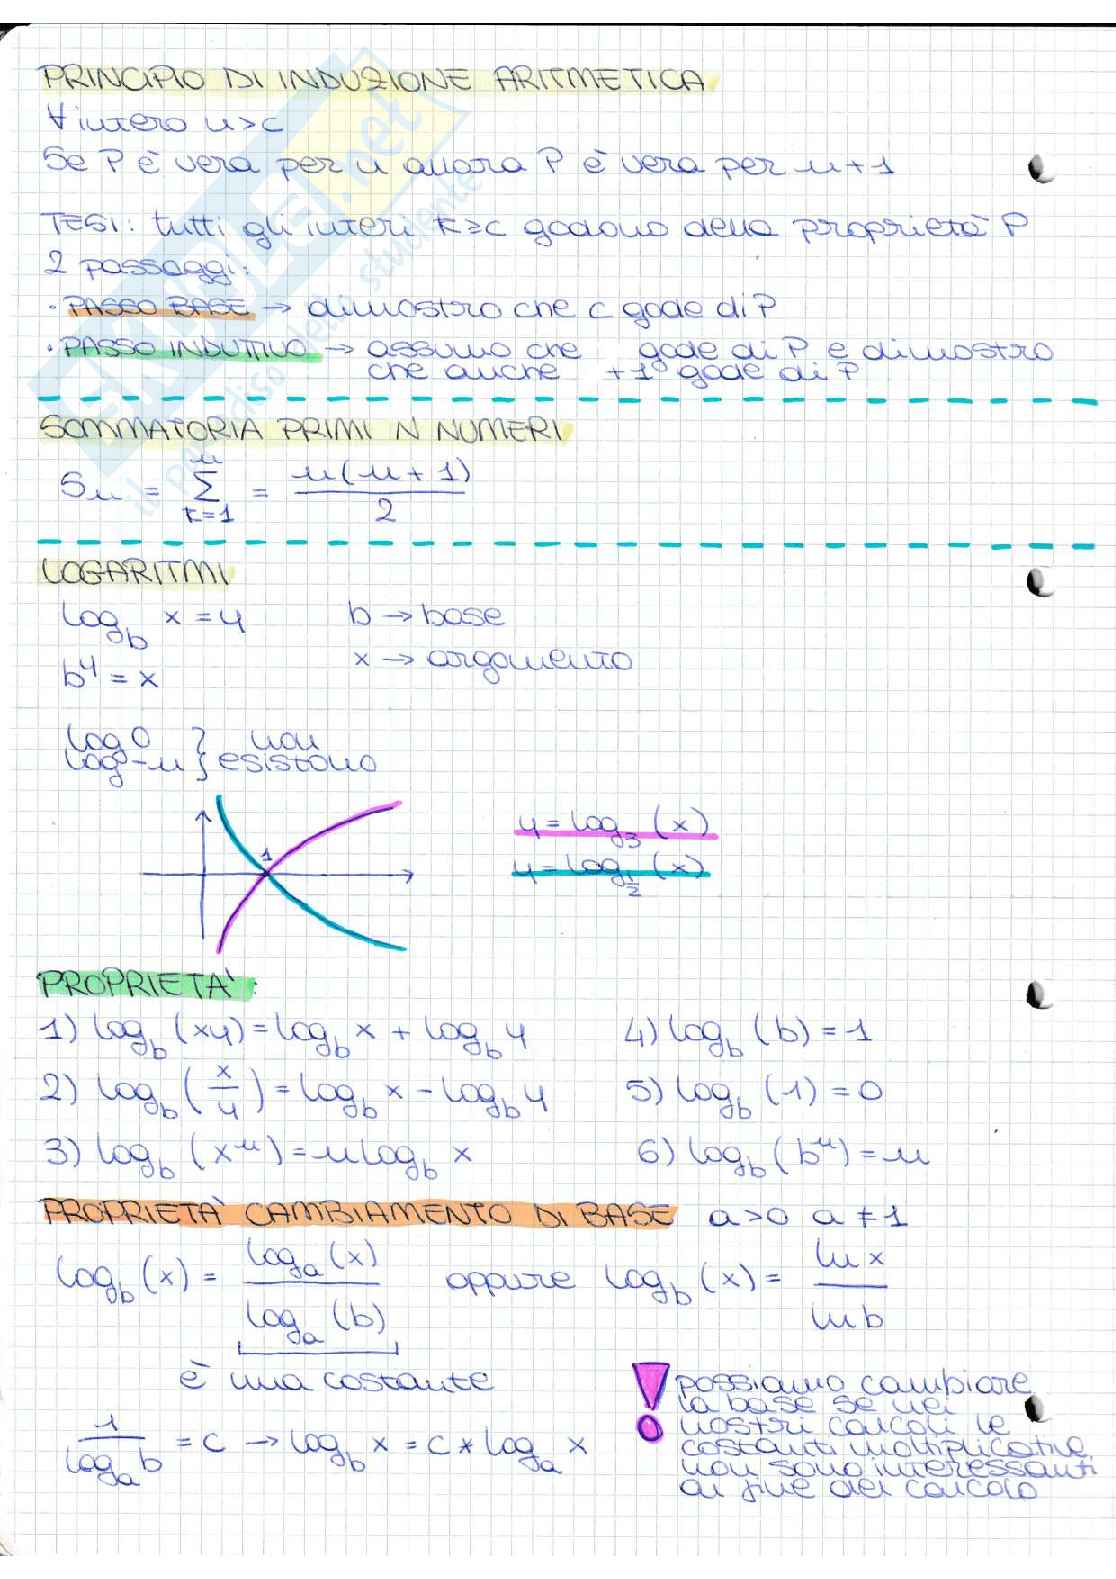 PRINCIPIO DI INDUZIONE ARITMETICA
∀ intero n>c
Se P è vera per n allora P è vera per n+1
TESI: tutti gli interi k≥c godono della proprietà P
2 passaggi:
· PASSO BASE → dimostro che c gode di P
· PASSO INDUTTIVO → assumo che gode di P e dimostro
che anche +1° gode di P
SOMMATORIA PRIMI N NUMERI
Sn = Σ_{k=1}^{n} = n(n+1)/2
LOGARITMI
log_b x = y   b → base
b^y = x   x → argomento
log 0 } non
log -n } esistono
1
y = log_3 (x)
y = log_{1/2} (x)
PROPRIETÀ:
1) log_b (xy) = log_b x + log_b y   4) log_b (b) = 1
2) log_b (x/y) = log_b x - log_b y   5) log_b (1) = 0
3) log_b (x^n) = n log_b x   6) log_b (b^n) = n
PROPRIETÀ CAMBIAMENTO DI BASE a>0 a≠1
log_b (x) = log_a (x) / log_a (b)   oppure   log_b (x) = ln x / ln b
è una costante
1 / log_a b = c → log_b x = c * log_a x
! possiamo cambiare
la base se nei
nostri calcoli le
costanti moltiplicative
non sono interessanti
ai fine del calcolo
SKUOLA.net
il paradiso dello studente